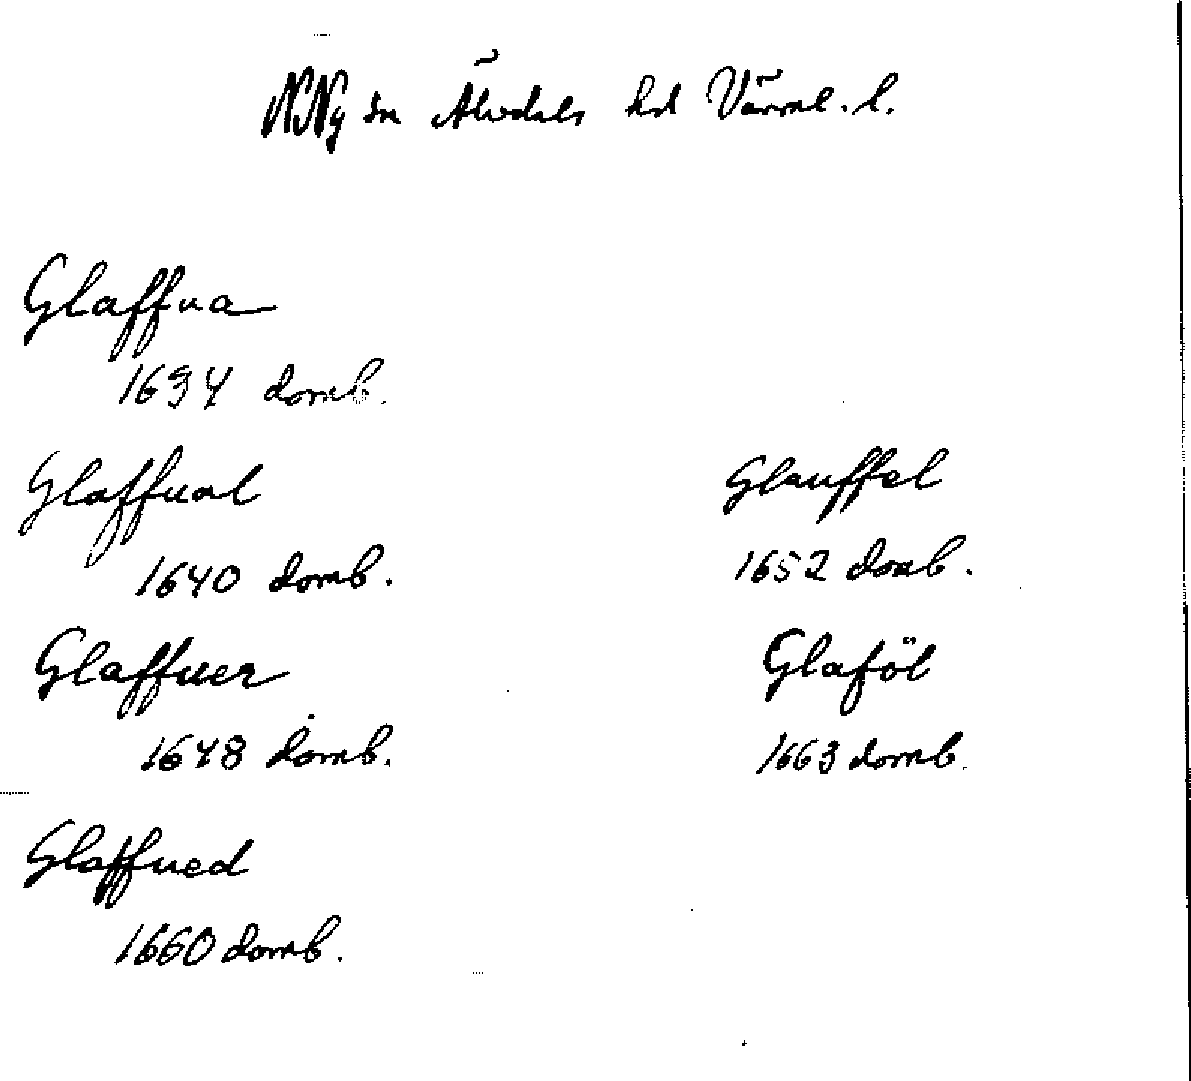 Ny sn Älvdals hd Värml. l.
Glaffua
1634 domb.
Glaffual
1640 domb.
Glaffuer
1648 domb.
Glaffued
1660 domb.
Glauffel
1652 domb.
Glaföl
1663 domb.